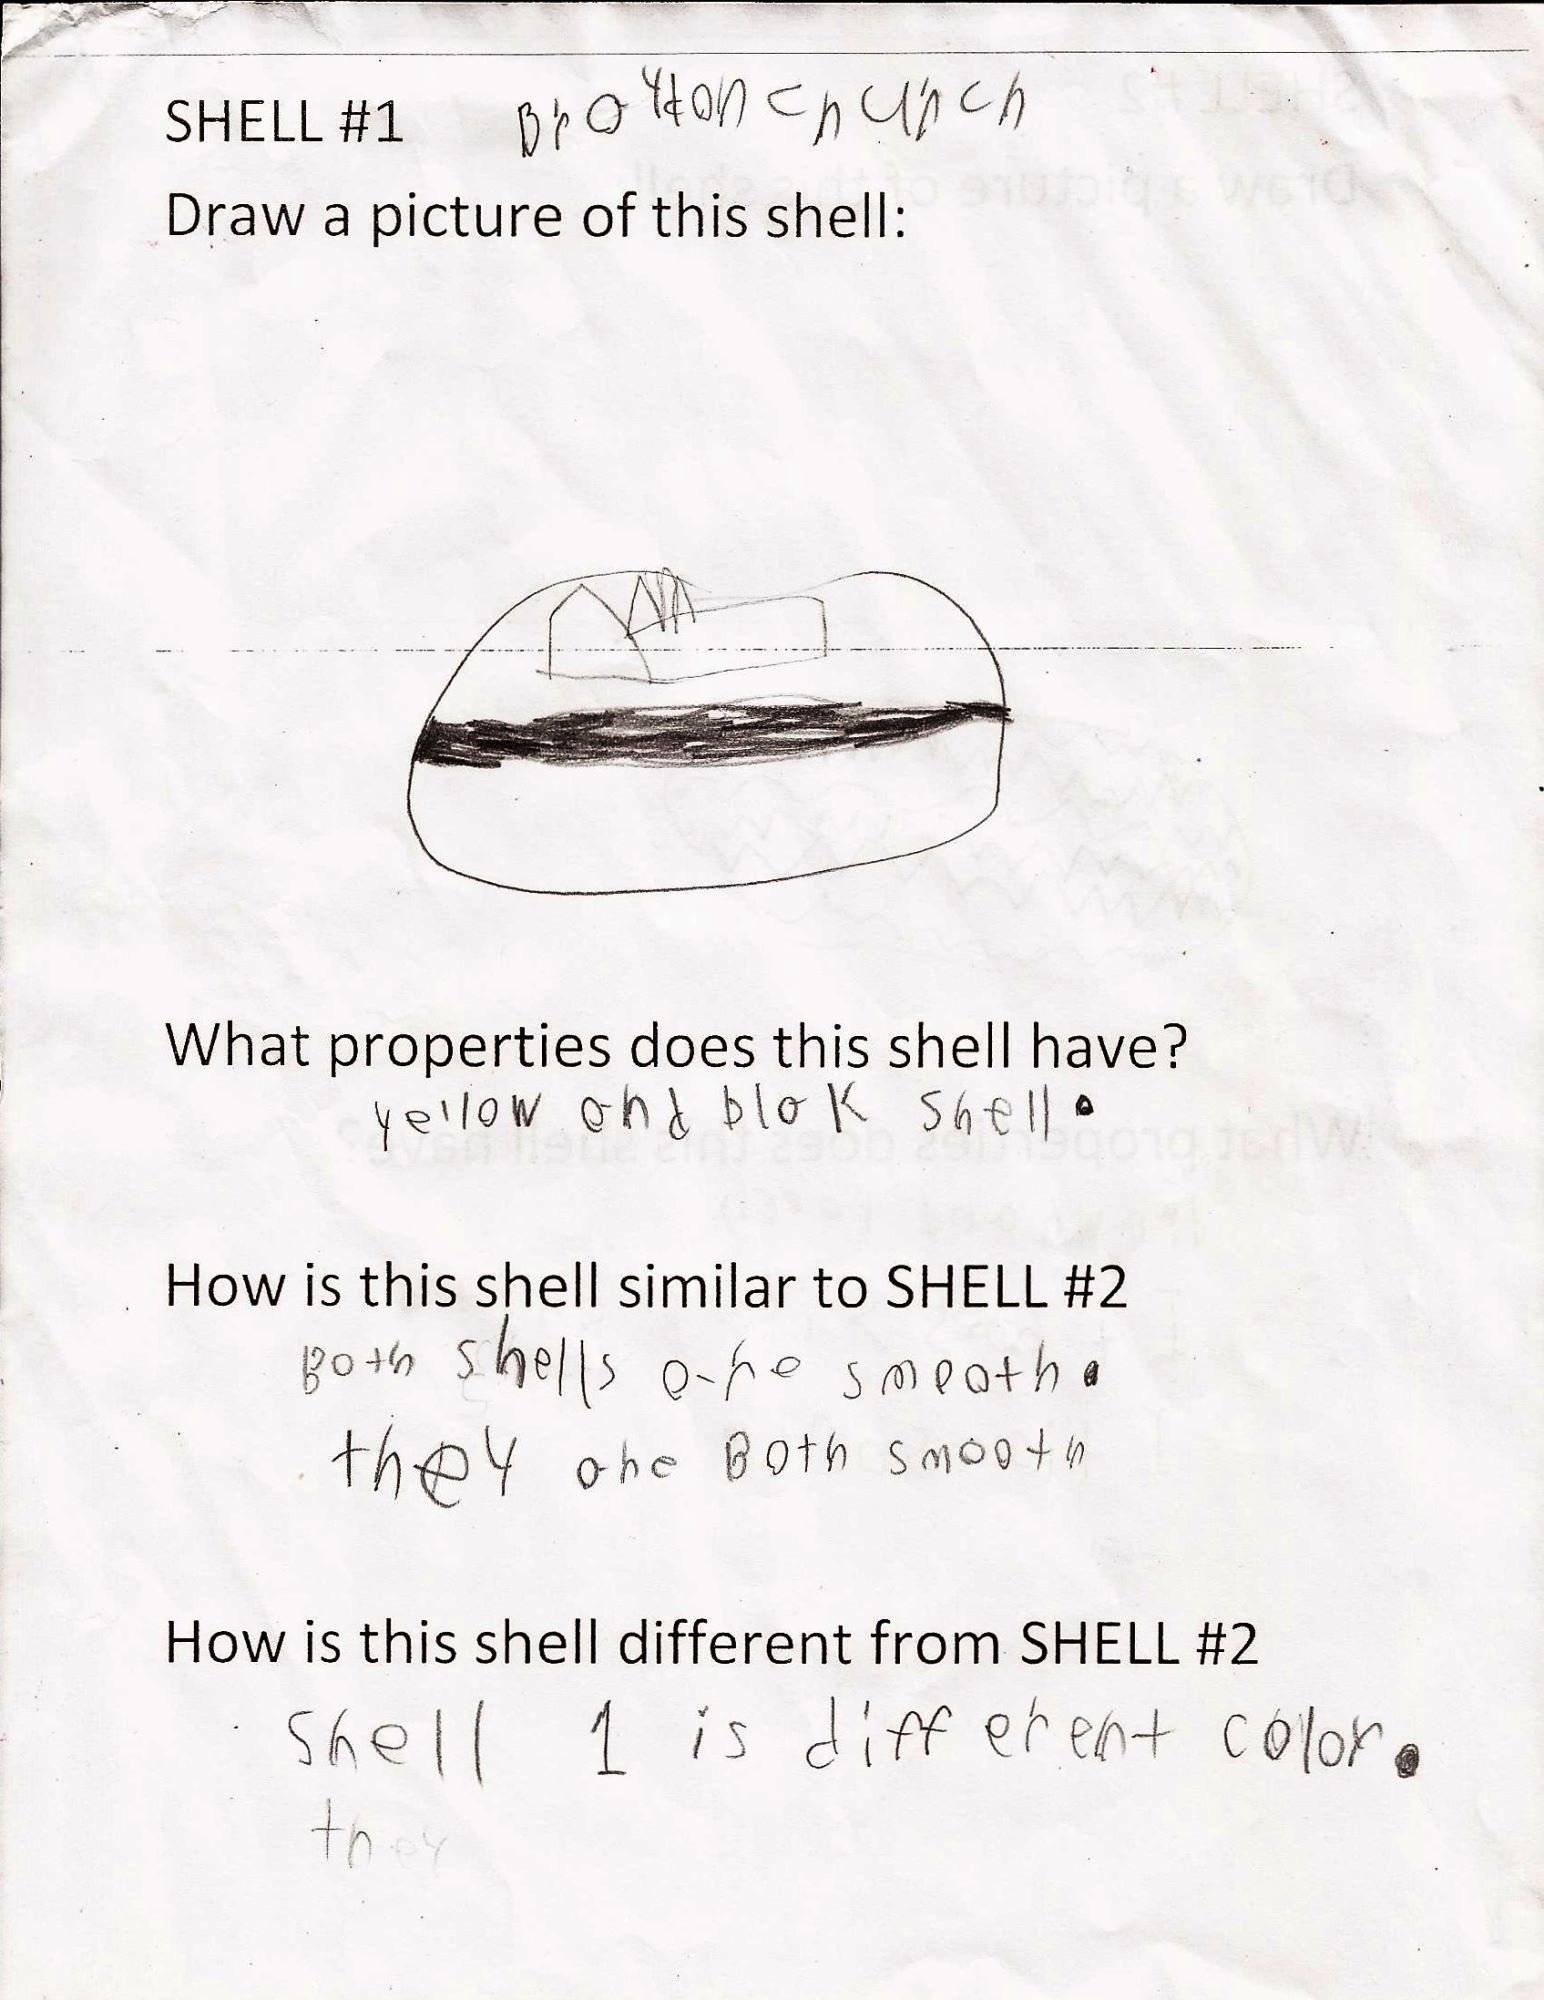 SHELL #1 Brayton church
Draw a picture of this shell:
What properties does this shell have?
yellow and blak shell.
How is this shell similar to SHELL #2
Both shells are smooth.
they are Both smooth
How is this shell different from SHELL #2
Shell 1 is different color.
they